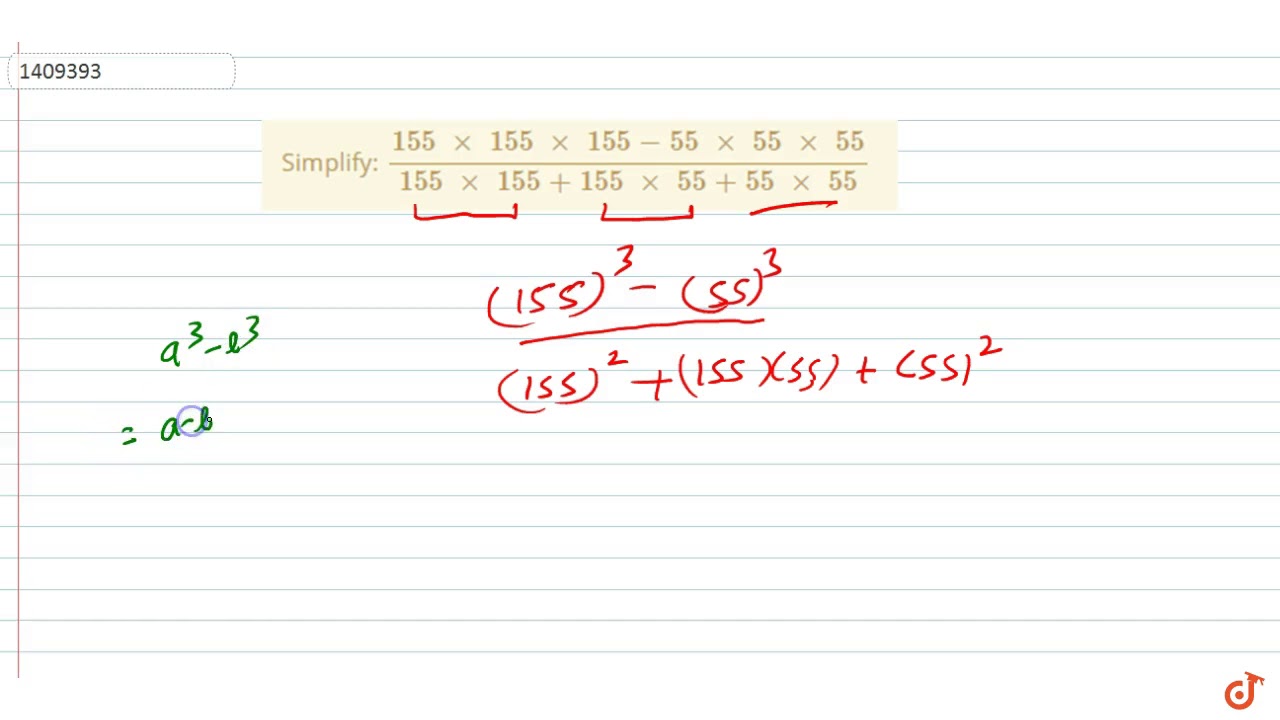 1409393
Simplify: 155 × 155 × 155 − 55 × 55 × 55
155 × 155 + 155 × 55 + 55 × 55
(155)³ − (55)³
(155)² + (155)(55) + (55)²
a³ − b³
= a − b